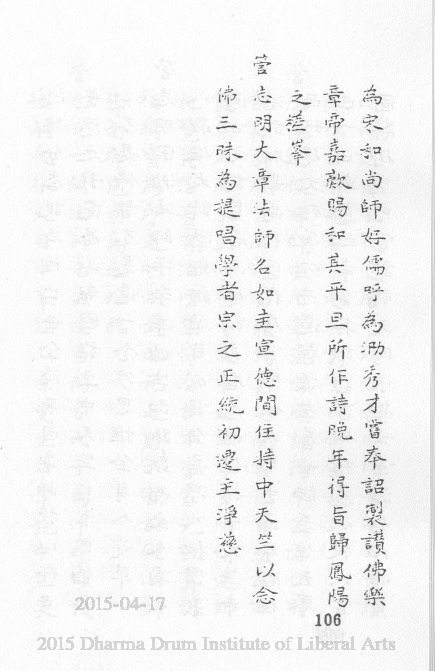 為宋和尚師好儒呼為泐秀才嘗奉詔製讚佛樂
章帝嘉歎賜和其平旦所作詩晚年得旨歸鳳陽
之槎峯
志明大章法師名如圭宣德間住持中天竺以念
佛三昧為提唱學者宗之正統初遷主淨慈
2015-04-17
106
2015 Dharma Drum Institute of Liberal Arts